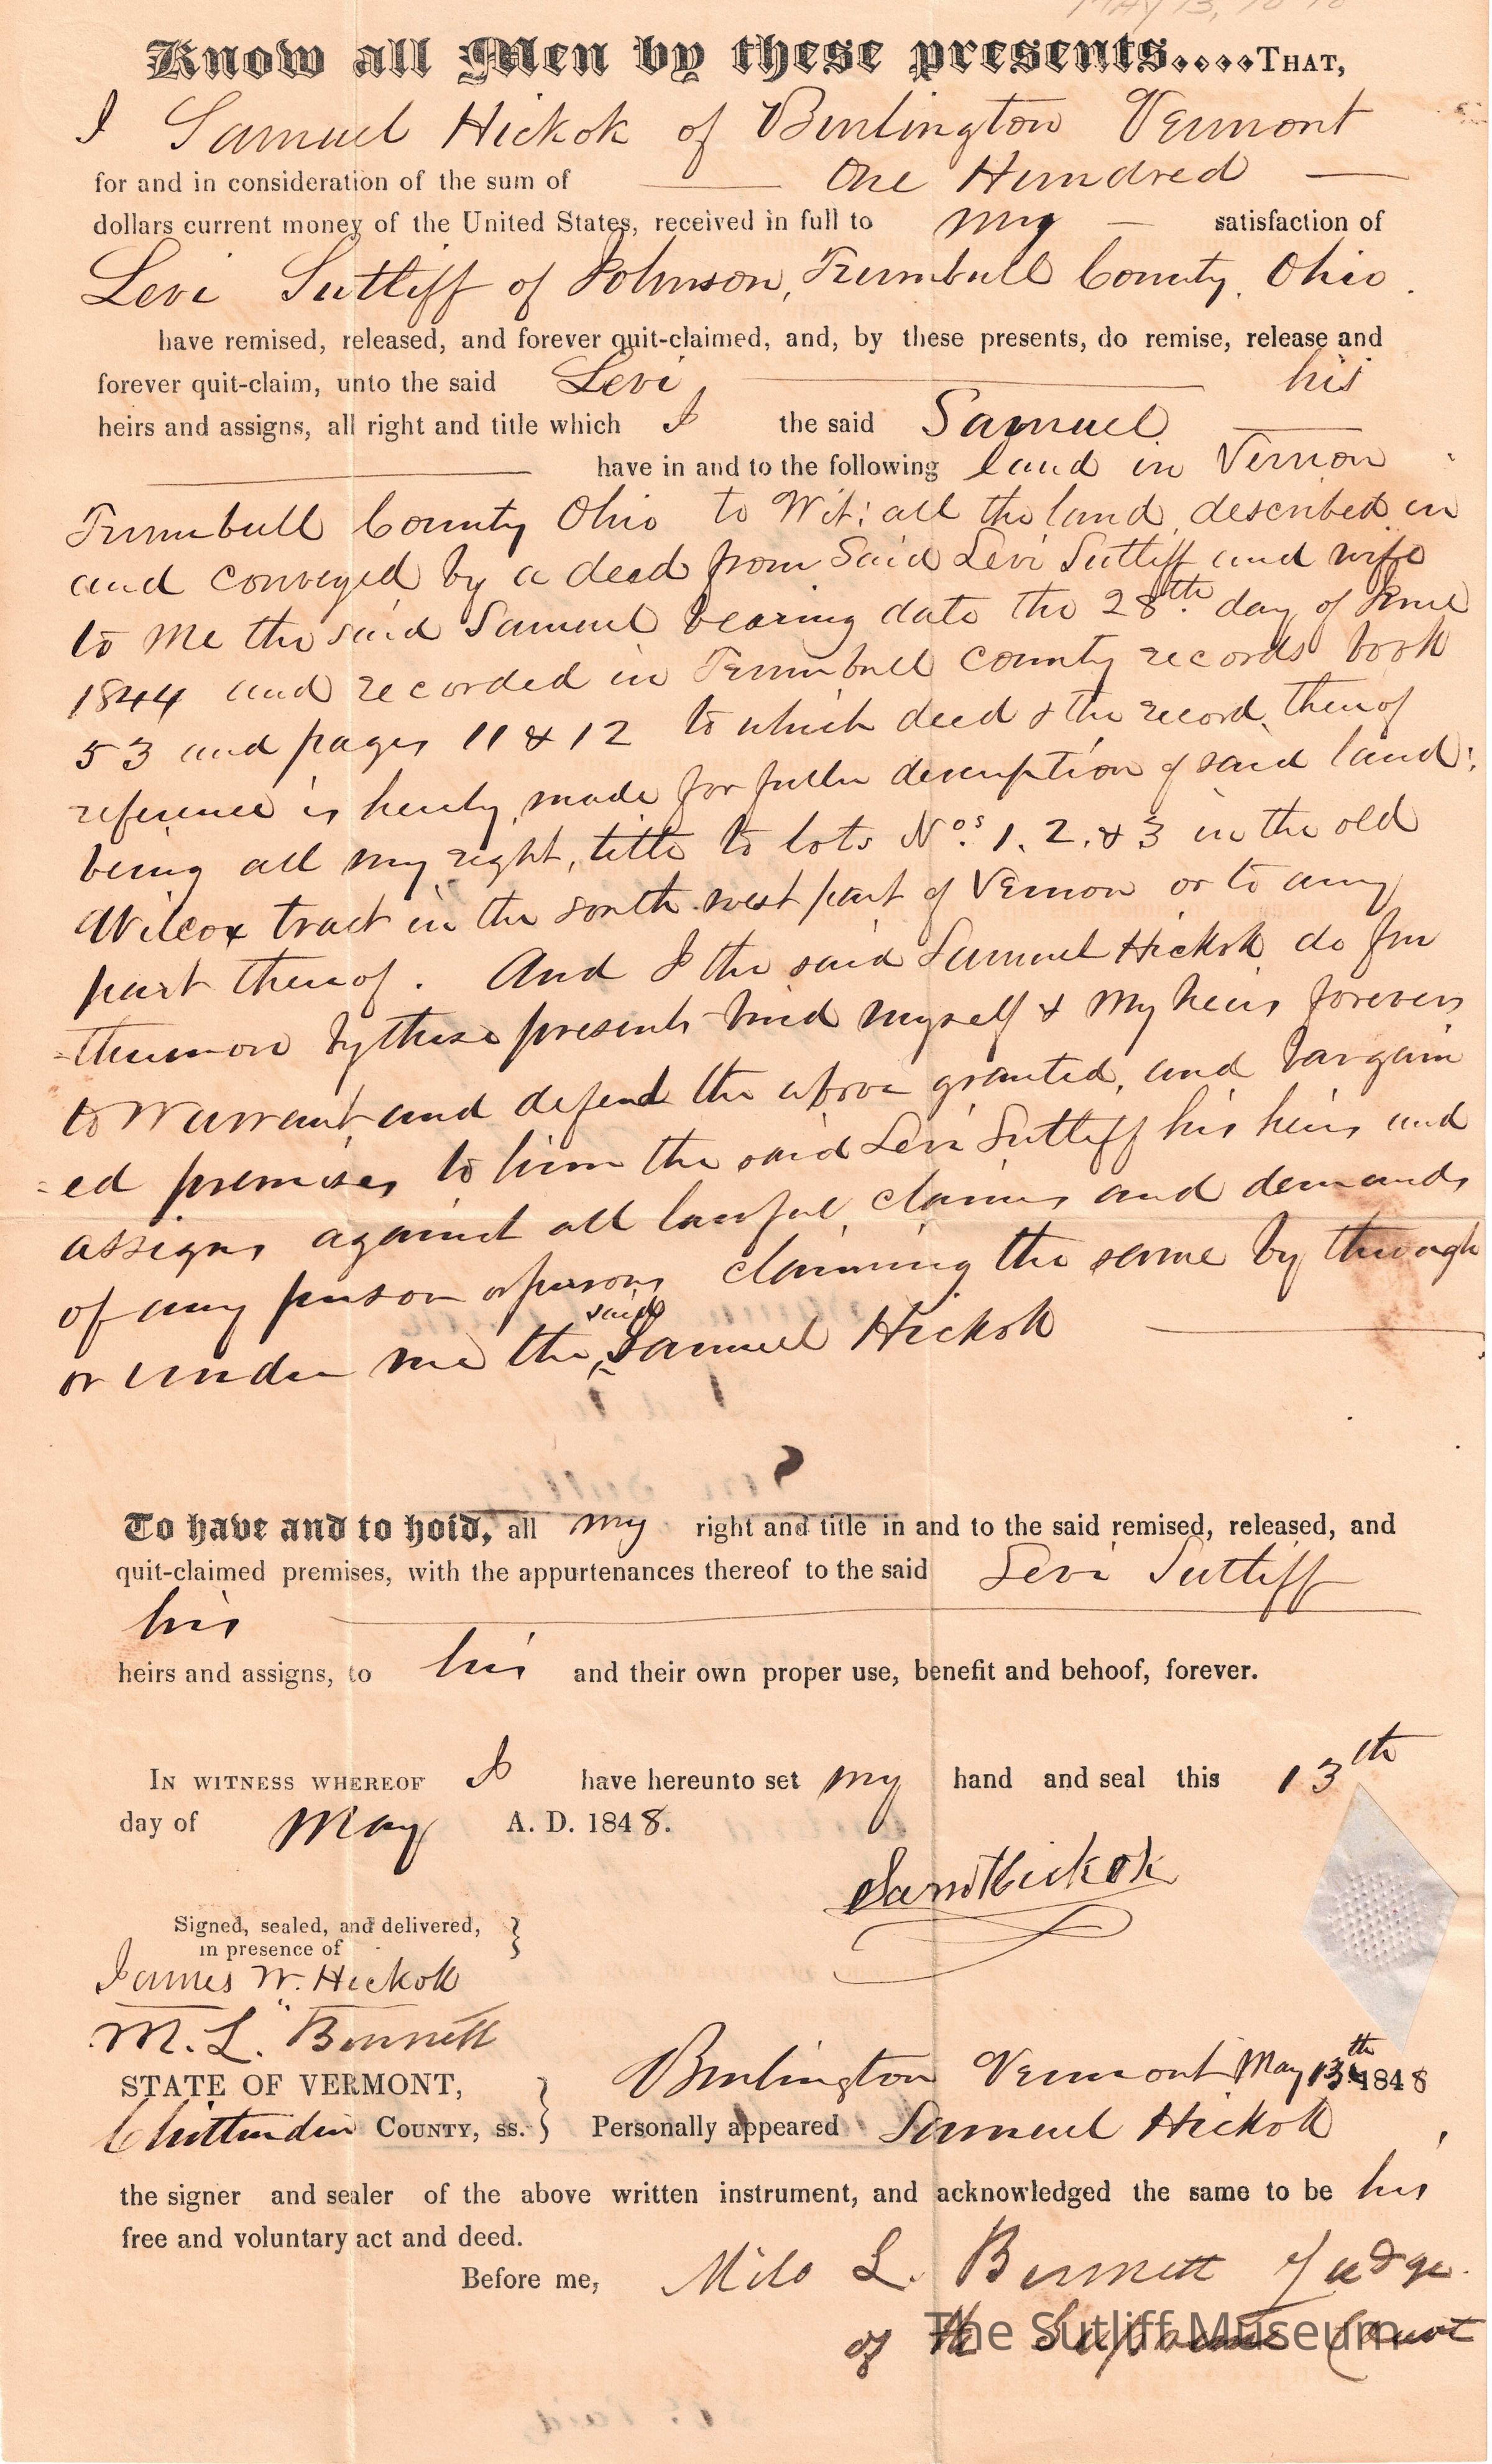 MAY 13, 18
Know all Men by these presents....THAT,
I Samuel Hickok of Burlington Vermont
for and in consideration of the sum of One Hundred
dollars current money of the United States, received in full to my satisfaction of
Levi Sutliff of Johnson, Trumbull County, Ohio.
have remised, released, and forever quit-claimed, and, by these presents, do remise, release and
forever quit-claim, unto the said Levi his
heirs and assigns, all right and title which I the said Samuel
have in and to the following land in Vernon
Trumbull County Ohio to Wit: all the land described in
and conveyed by a deed from Said Levi Sutliff and wife
to me the said Samuel bearing date the 28th day of June
1844 and recorded in Trumbull county records book
53 and pages 11 & 12 to which deed & the record thereof
reference is hereby made for fuller description of said land:
being all my right, title to lots Nos. 1. 2. & 3 in the old
Wilcox tract in the south west part of Vernon or to any
part thereof. And I the said Samuel Hickok do fur
-thermore by these presents bind myself & my heirs forever
to Warrant and defend the above granted, and bargain
=ed premises to him the said Levi Sutliff his heirs and
assigns against all lawful claims and demands
of any person or persons claiming the same by through
or under me the said Samuel Hickok
To have and to hold, all my right and title in and to the said remised, released, and
quit-claimed premises, with the appurtenances thereof to the said Levi Sutliff
his
heirs and assigns, to his and their own proper use, benefit and behoof, forever.
IN WITNESS WHEREOF I have hereunto set my hand and seal this 13th
day of May A. D. 1848.
Saml Hickok
Signed, sealed, and delivered, }
in presence of
James W. Hickok
M. L. Bennett
STATE OF VERMONT, } Burlington Vermont May 13th 1848
Chittenden COUNTY, ss. Personally appeared Samuel Hickok,
the signer and sealer of the above written instrument, and acknowledged the same to be his
free and voluntary act and deed.
Before me, Milo L. Bennett Judge
of the Supreme Court
The Sutliff Museum